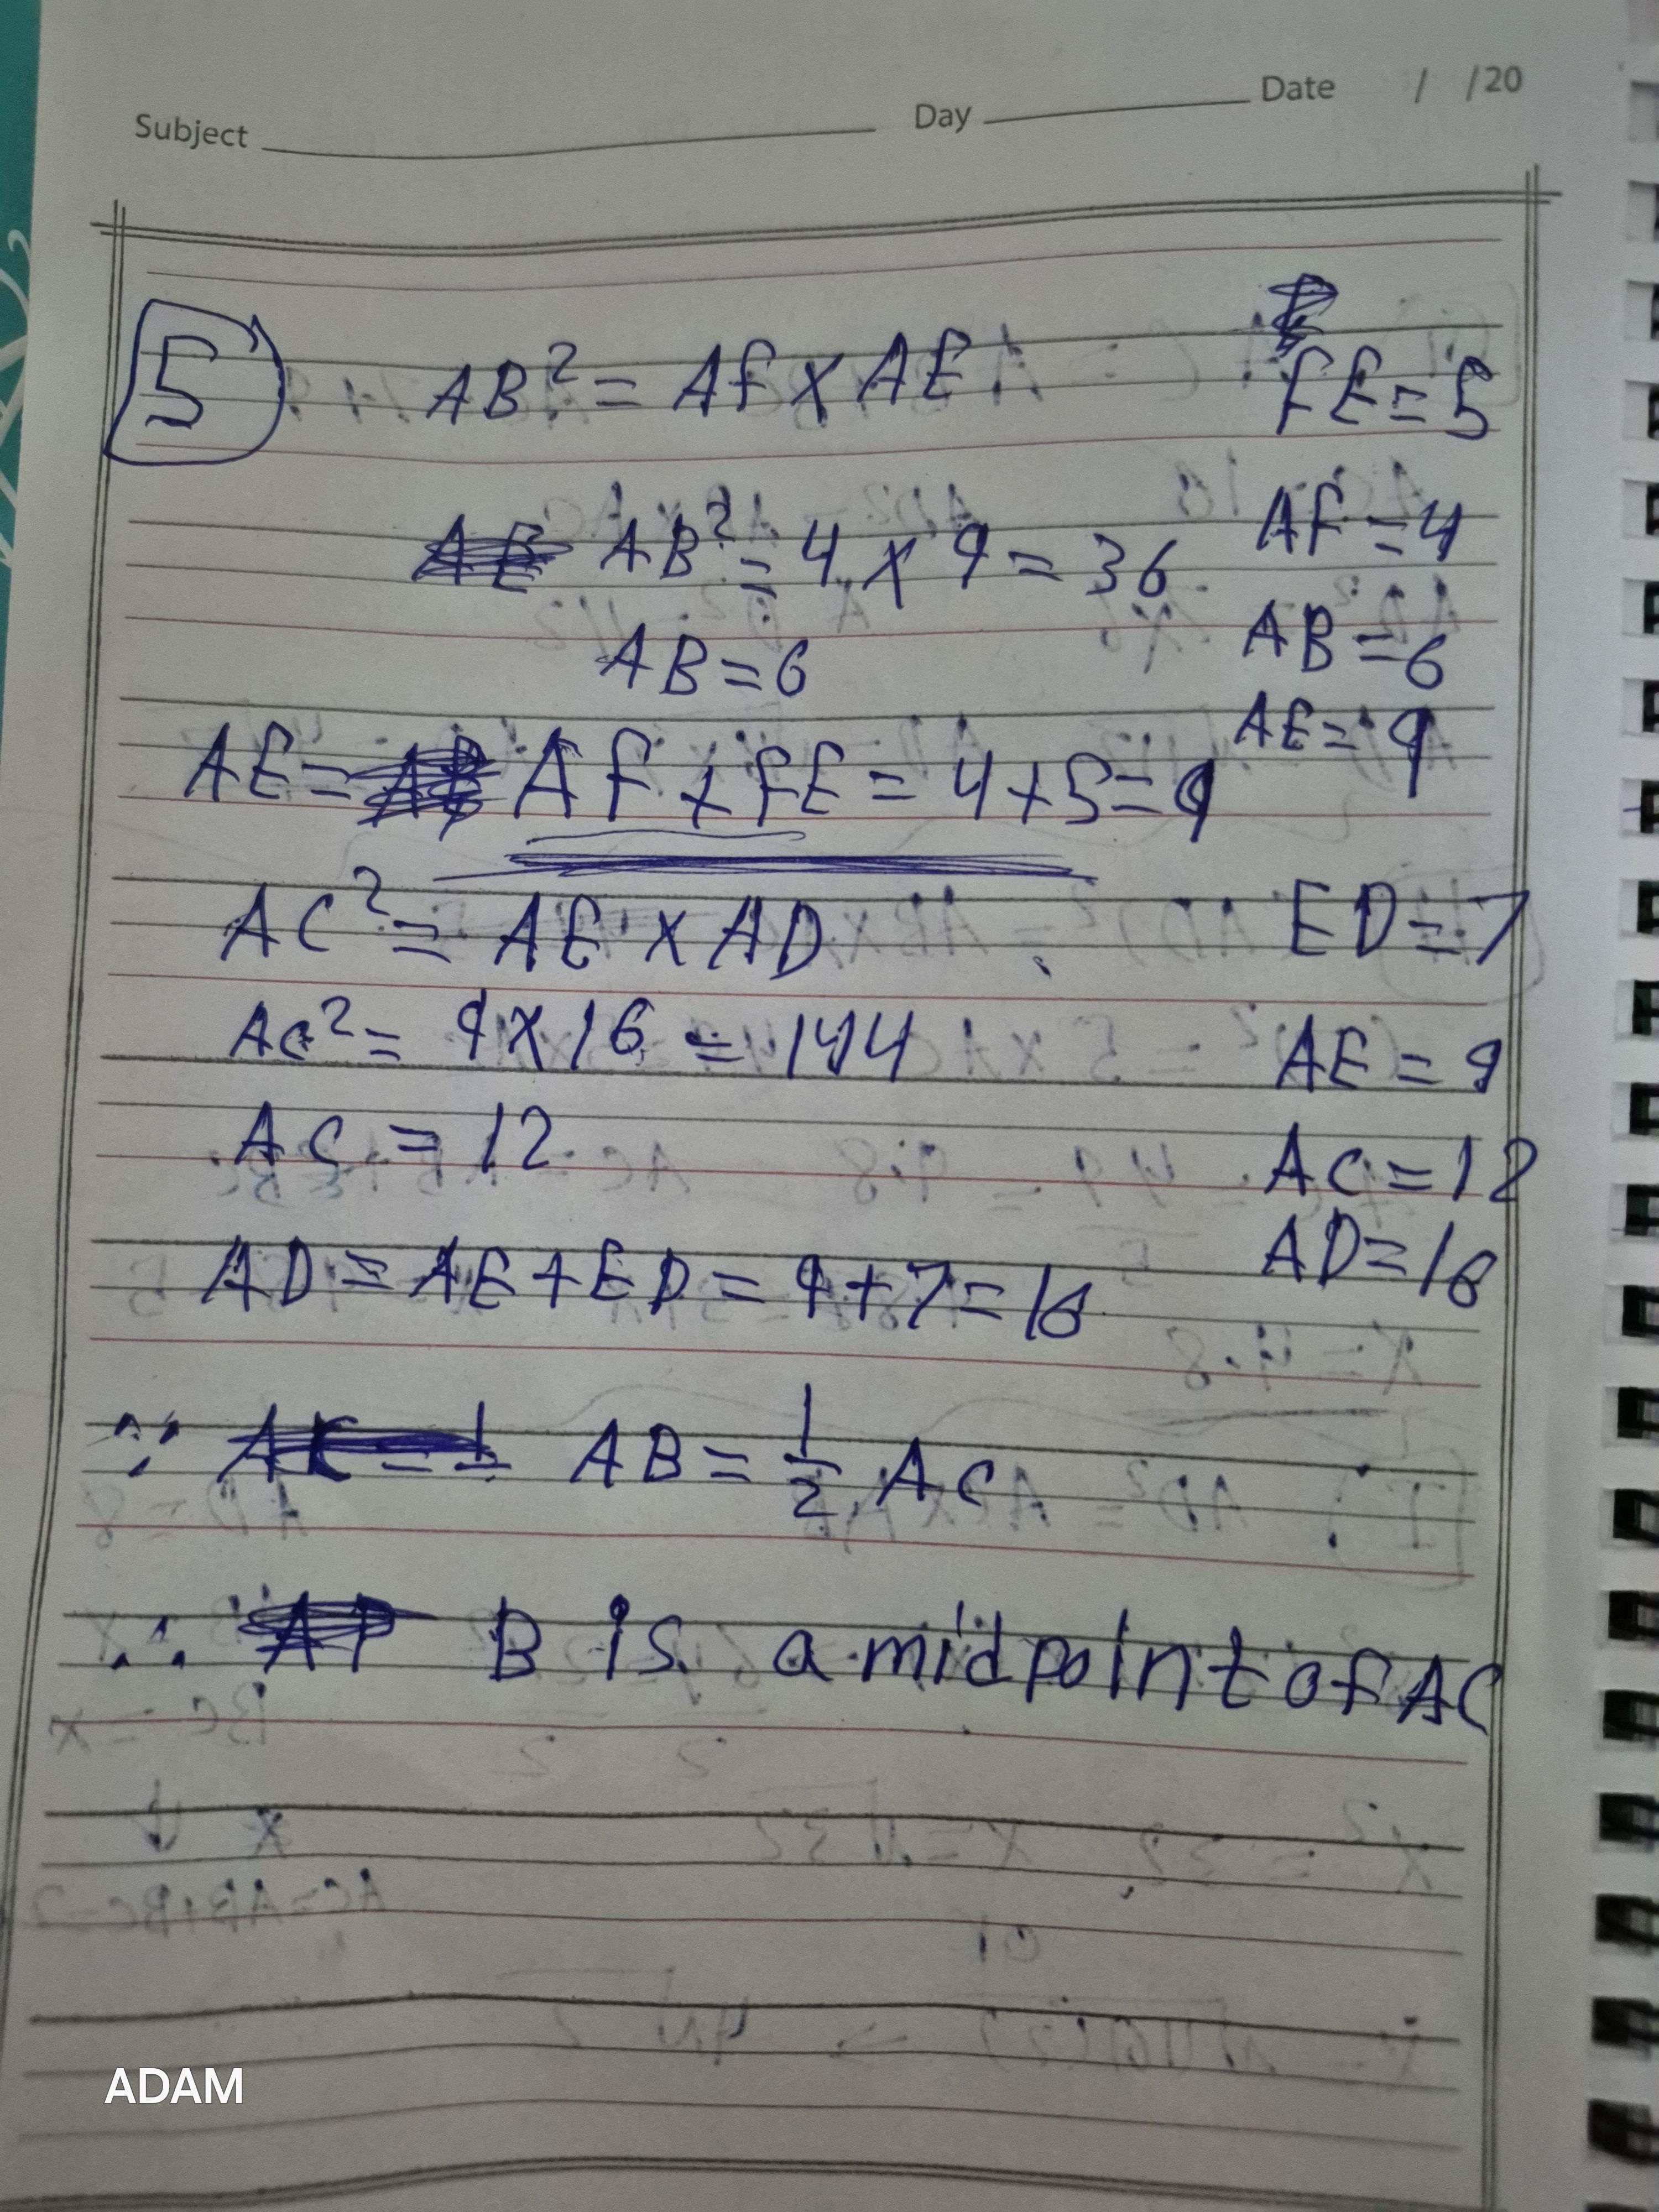 Subject Day Date / /20
5 AB² = AF X AE FE = 5
AB² = 4 X 9 = 36 AF = 4
AB = 6 AB = 6
AE = 9
AE = AF + FE = 4 + 5 = 9
AC² = AE X AD ED = 7
AC² = 9 X 16 = 144 AE = 9
AC = 12 AC = 12
AD = AE + ED = 9 + 7 = 16 AD = 16
∵ AB = 1/2 AC
∴ B is a midpoint of AC
ADAM